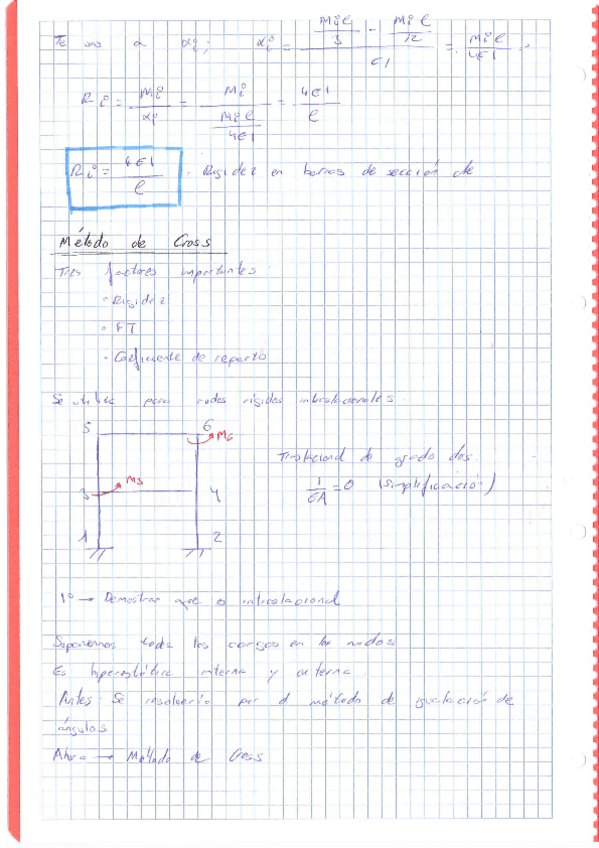 Te a αi; αi = (Mi l / 3 - Mi l / 12) / EI = Mi l / 4EI
Ri = Mi / αi = Mi / (Mi l / 4EI) = 4EI / l
Ri = 4EI / l Rigidez en barras de sección cte
Método de Cross
Tres factores importantes
- Rigidez
- FT
- Coeficiente de reparto
Se utiliza para nudos rígidos intraslacionales.
5 6 M6
Traslacional de grado dos.
1/EA = 0 (simplificación)
3 M3 4
1 2
1º → Demostrar que es intraslacional
Suponemos todas las cargas en los nudos
Es hiperestática interna y externa
Antes se resolvería por el método de igualación de
ángulos
Ahora → Método de Cross